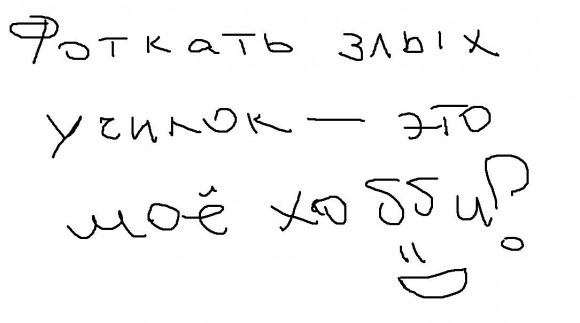 Фоткать злых
училок — это
моё хобби?